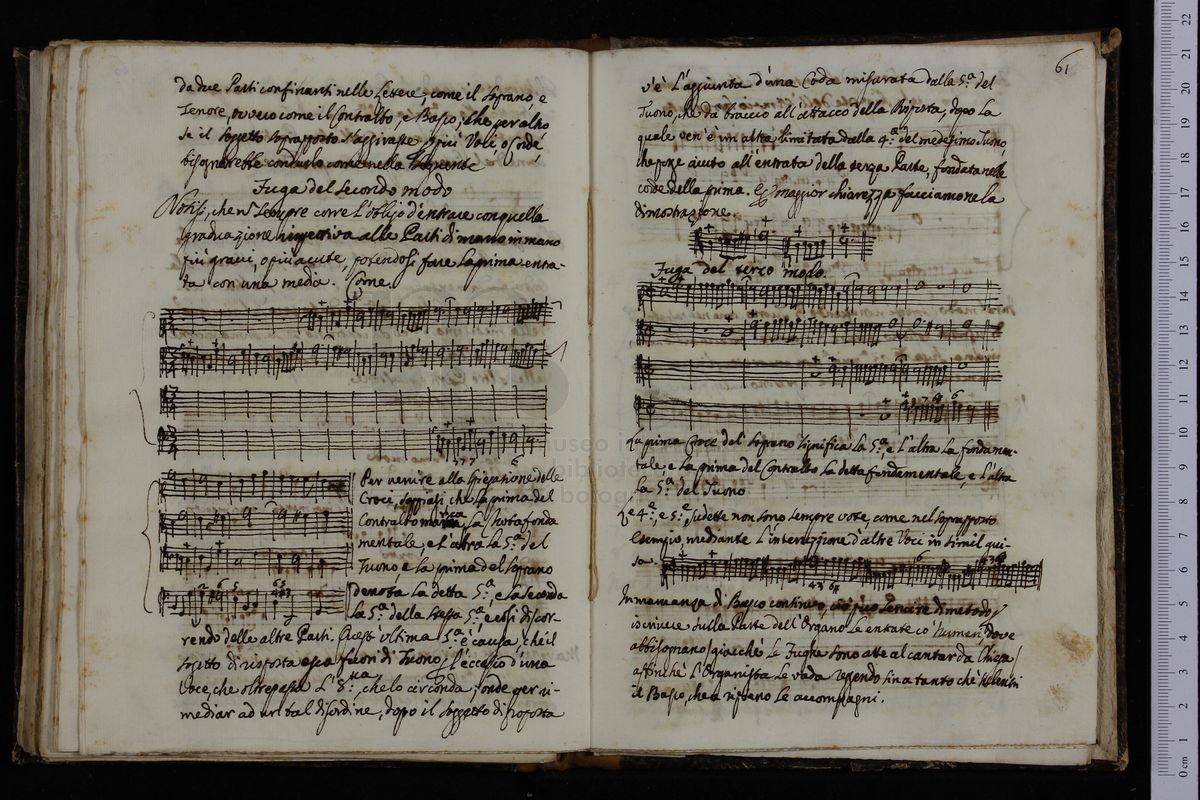 da due Parti confinanti nelle Lettere, come il Soprano, e
Tenore, ovvero come il Contralto, e Basso, che per altro
se il Soggetto soprapposto s'aggirasse di più Voli, onde,
bisognerebbe condurlo come nella seguente
Fuga del Secondo modo
Notisi, che n. sempre corre l'obligo d'entrare con quella
graduazione rispettiva alle Parti di mano in mano
più gravi, o più acute, potendosi fare la prima entra-
ta con una media. Come.
Per venire alla spiegazione delle
Croci, sappiasi che la prima del
Contralto marca la Nota fonda
mentale, e l'altra la 5.ª del
Tuono, e la prima del Soprano
Denota la detta 5.ª, e la seconda
la 5.ª della stessa 5.ª, e così discor-
rendo delle altre Parti. Quest'ultima 5.ª è causa, che il
Sogetto di risposta esca fuori di Tuono, l'eccesso d'una
Voce, che oltrepassa l'8.va, che lo circonda, onde per ri-
mediar ad un tal disordine, dopo il Soggetto di proposta
61
v'è l'aggiunta d'una Coda misurata dalla 5.ª del
Tuono, che dà braccio all'attacco della Risposta, dopo la
quale ven'è un altra limitata dalla 4.ª del medesimo Tuono,
che porge aiuto all'entrata della terza Parte, fondata nelle
corde della prima. Per maggior chiarezza facciamone la
dimostrazione.
Fuga del terzo modo
La prima Croce del Soprano significa la 5.ª, e l'altra la fondamen-
tale, e la prima del Contralto la detta fondamentale, e l'altra
la 5.ª del Tuono
Le 4.ª, e 5.ª sudette non sono sempre vote, come nel soprapposto
Esempio, mediante l'interuzione d'altre Voci in simil gui-
sa.
In mancanza di Basso continuo, si può tenere di metodo,
iscrivere sulla Parte dell'Organo le entrate co' Numeri dove
abbisognano (giacchè le Fughe sono atte al cantar da Chiesa)
affinchè l'Organista le vada reggendo fina tanto che
il Basso, che a riparo le accompagni.